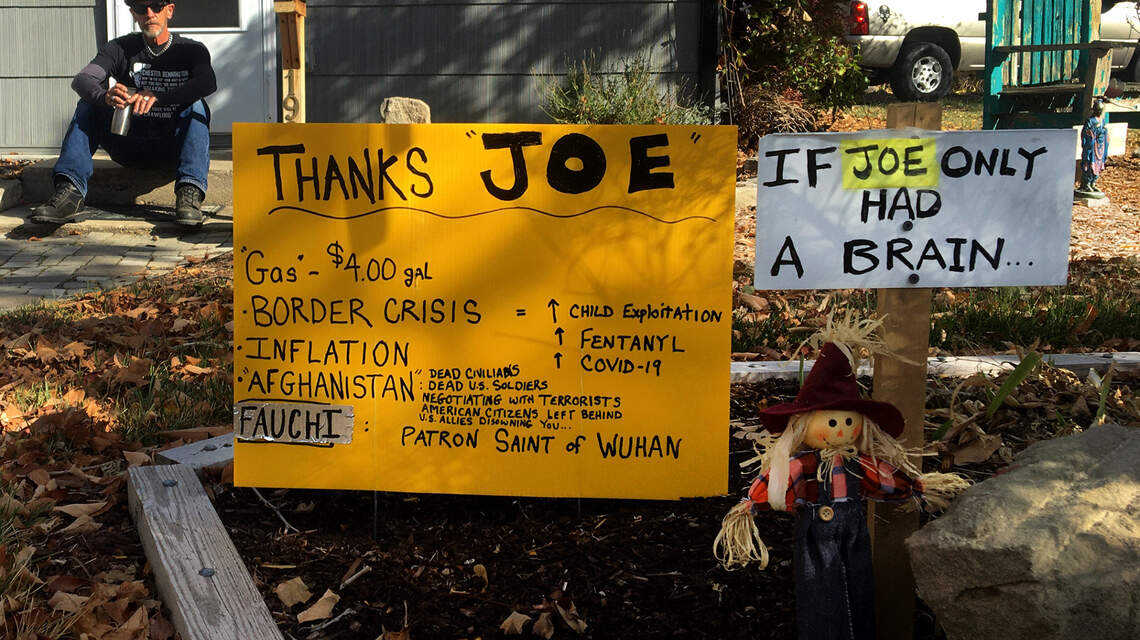 THANKS "JOE"
"Gas" - $4.00 gal
• BORDER CRISIS = ↑ CHILD Exploitation
↑ FENTANYL
↑ COVID-19
• INFLATION
• "AFGHANISTAN": DEAD CIVILIANS
: DEAD U.S. SOLDIERS
NEGOTIATING WITH TERRORISTS
AMERICAN CITIZENS LEFT BEHIND
U.S. ALLIES DISOWNING YOU...
FAUCHI : PATRON SAINT of WUHAN
IF JOE ONLY
HAD
A BRAIN...
CHESTER BENNINGTON
CRAWLING"
19